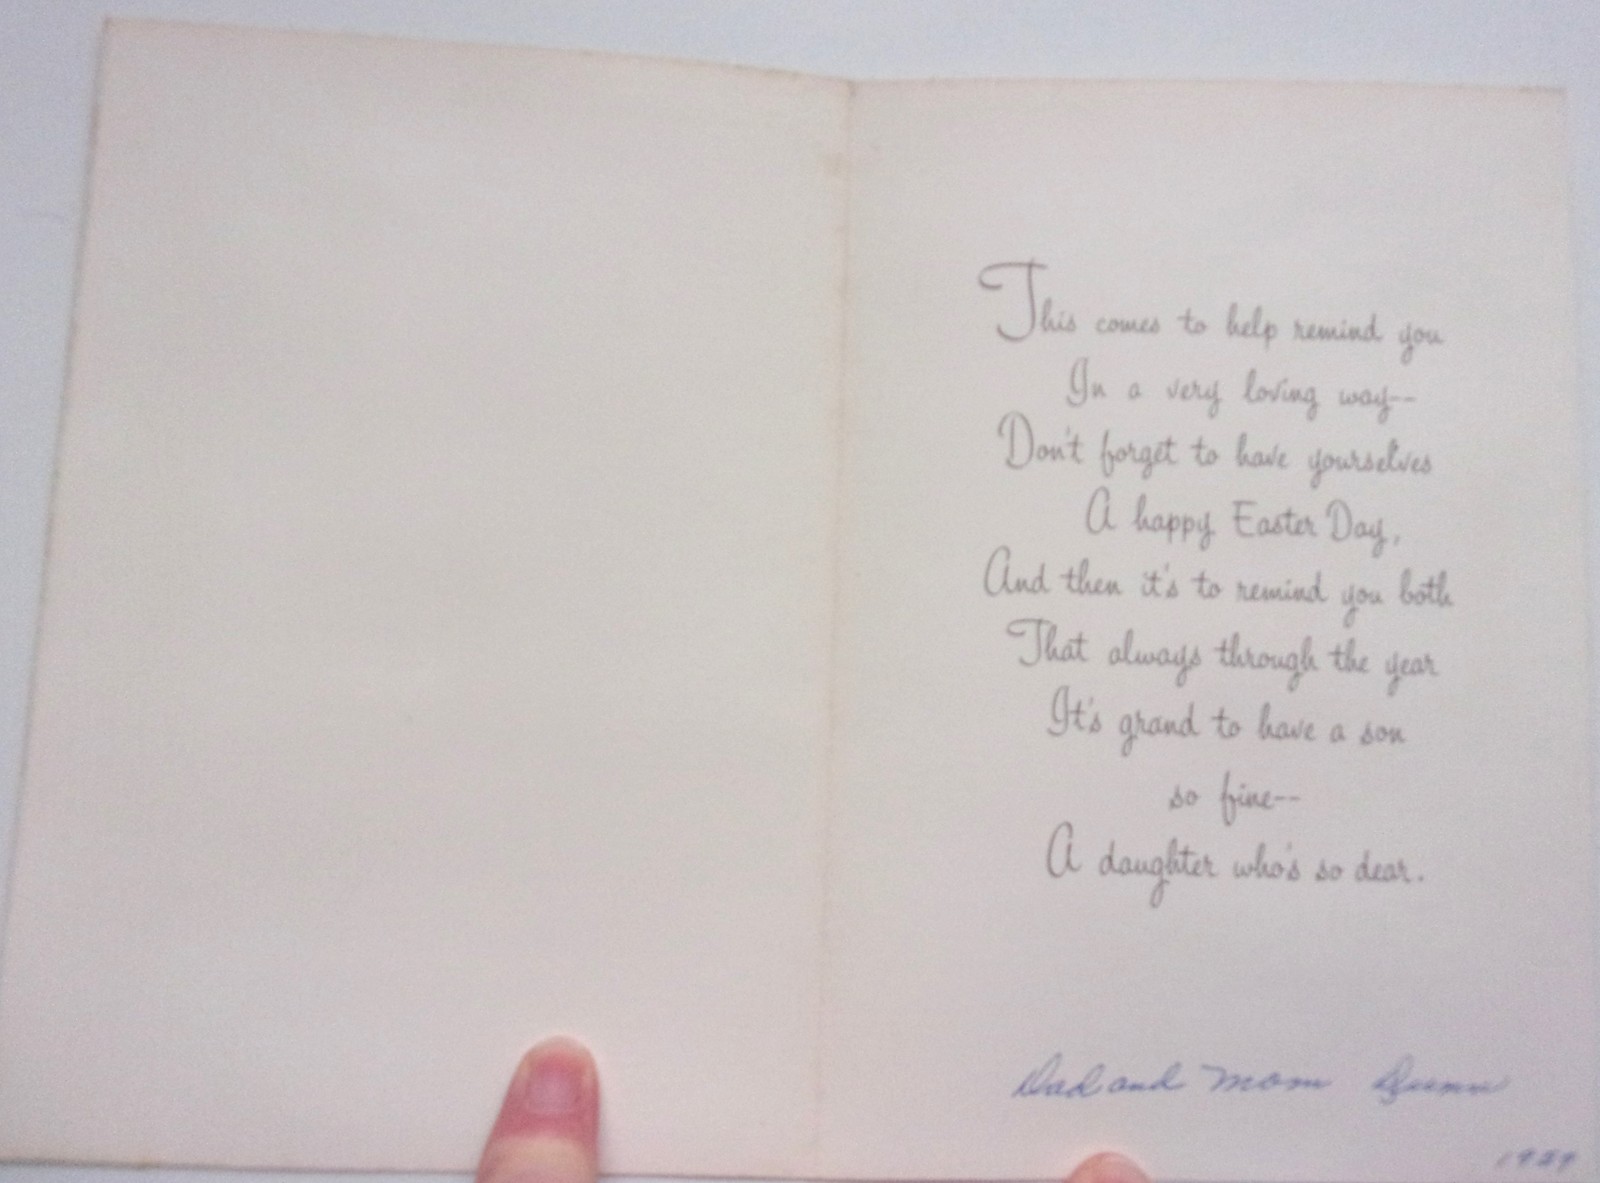 This comes to help remind you
In a very loving way--
Don't forget to have yourselves
A happy Easter Day,
And then it's to remind you both
That always through the year
It's grand to have a son
so fine--
A daughter who's so dear.
Dad and Mom